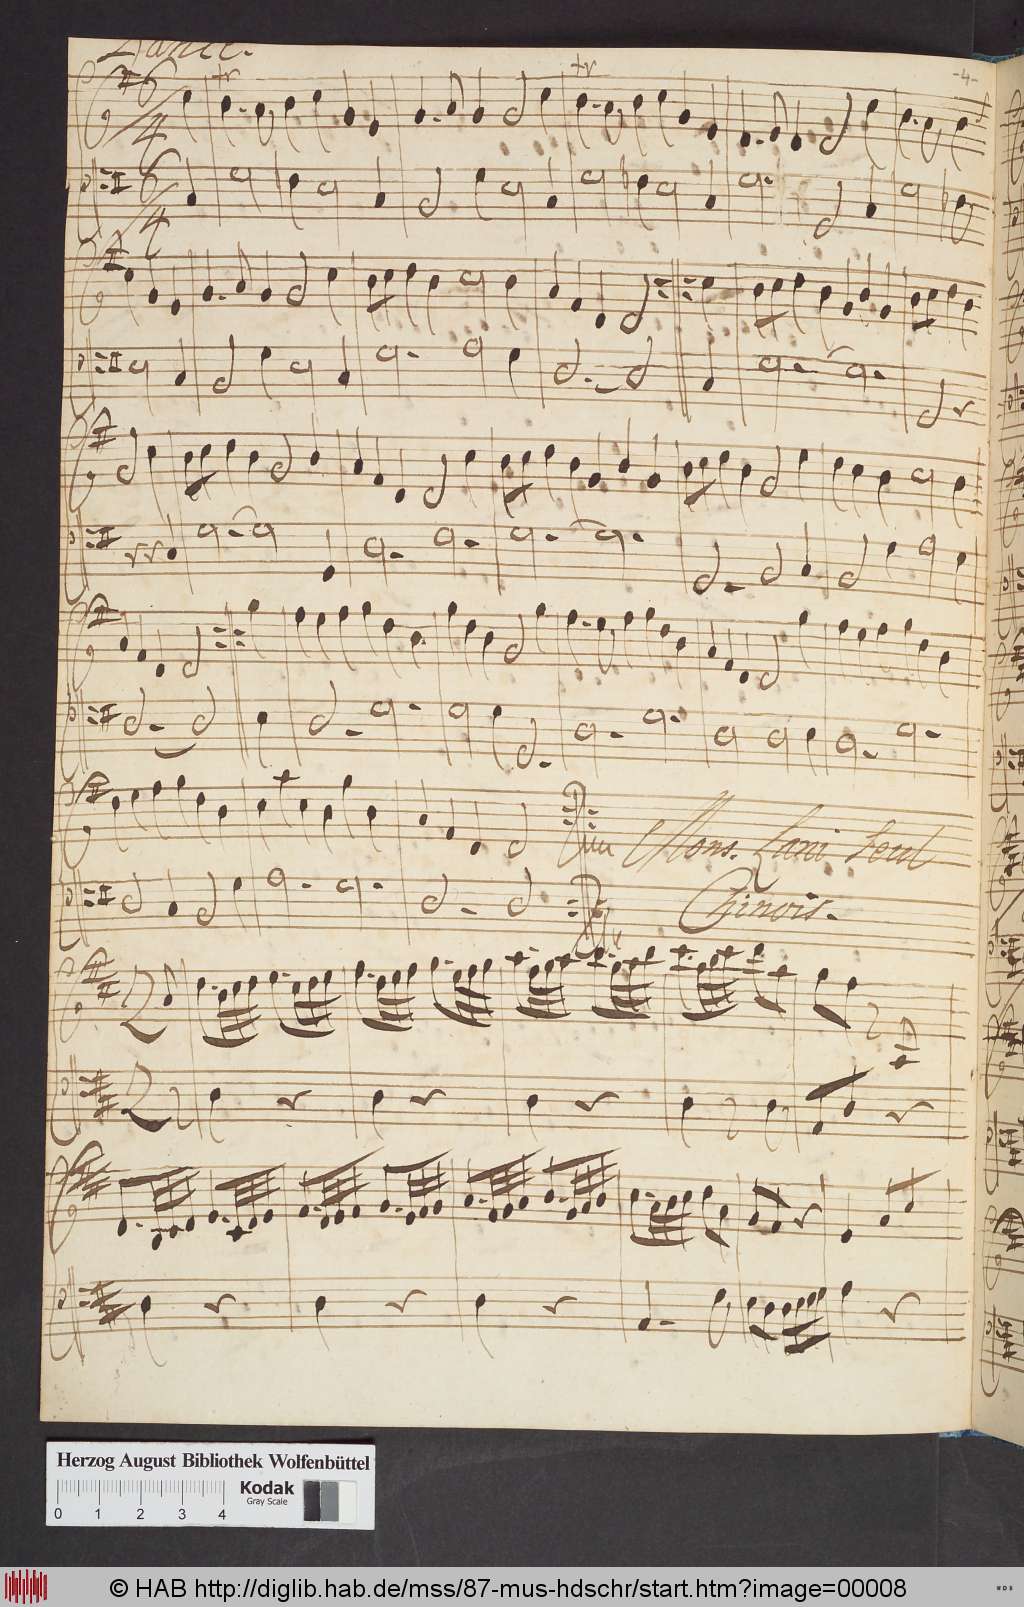 -4-
6
4
tr
tr
6
4
Mons. Lani Seul
Chinois.
2
2
Herzog August Bibliothek Wolfenbüttel
Kodak
Gray Scale
0 1 2 3 4
© HAB http://diglib.hab.de/mss/87-mus-hdschr/start.htm?image=00008